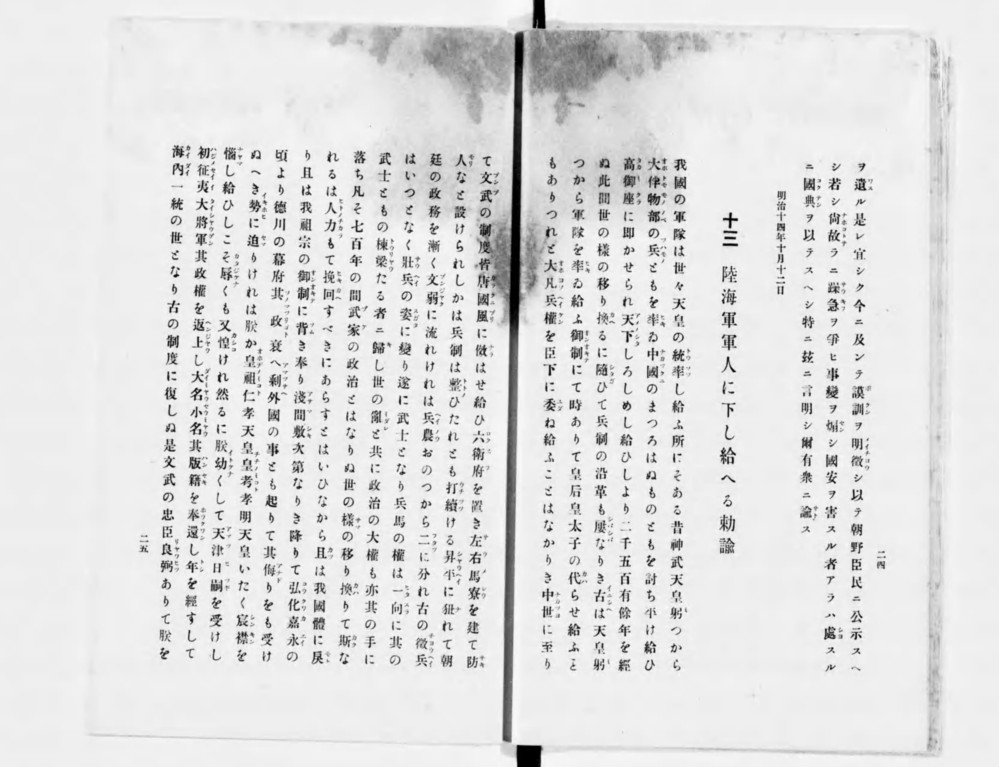 二四
ヲ遺ル是レ宜シク今ニ及ンテ謨訓ヲ明徴シ以テ朝野臣民ニ公示スヘ
シ若シ尙故ラニ躁急ヲ爭ヒ事變ヲ煽シ國安ヲ害スル者アラハ處スル
ニ國典ヲ以テスヘシ特ニ玆ニ言明シ爾有衆ニ諭ス
明治十四年十月十二日
十三 陸海軍軍人に下し給へる勅諭
我國の軍隊は世々天皇の統率し給ふ所にそある昔神武天皇躬つから
大伴物部の兵ともを率ゐ中國のまつろはぬものともを討ち平け給ひ
高御座に卽かせられ天下しろしめし給ひしより二千五百有餘年を經
ぬ此間世の樣の移り換るに隨ひて兵制の沿革も屢なりき古は天皇躬
つから軍隊を率ゐ給ふ御制にて時ありて皇后皇太子の代らせ給ふと
もありつれと大凡兵權を臣下に委ね給ふことはなかりき中世に至り
て文武の制度皆唐國風に傚はせ給ひ六衛府を置き左右馬寮を建て防
人なと設けられしかは兵制は整ひたれとも打續ける昇平に狃れて朝
廷の政務を漸く文弱に流れけれは兵農おのつから二に分れ古の徴兵
はいつとなく壯兵の姿に變り遂に武士となり兵馬の權は一向に其の
武士ともの棟梁たる者ニ歸し世の亂と共に政治の大權も亦其の手に
落ち凡そ七百年の間武家の政治とはなりぬ世の樣の移り換りて斯な
れるは人力もて挽回すべきにあらすとはいひなから且は我國體に戾
り且は我祖宗の御制に背き奉り淺間敷次第なりき降りて弘化嘉永の
頃より德川の幕府其政衰へ剩外國の事とも起りて其侮りをも受け
ぬへき勢に迫りけれは朕か皇祖仁孝天皇皇考孝明天皇いたく宸襟を
惱し給ひしこそ辱くも又惶けれ然るに朕幼くして天津日嗣を受けし
初征夷大將軍其政權を返上し大名小名其版籍を奉還し年を經すして
海內一統の世となり古の制度に復しぬ是文武の忠臣良弼ありて朕を
二五